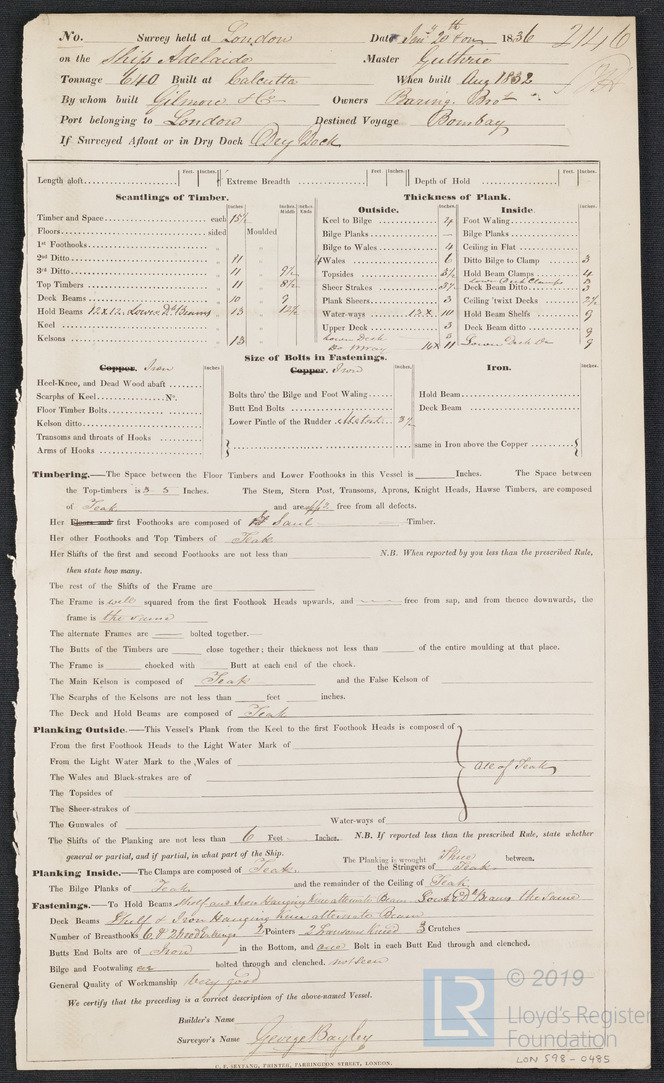 No. Survey held at London Date Jany 20th 1836 2146
on the Ship Adelaide Master Guthrie
Tonnage 640 Built at Calcutta When built Aug 1832
By whom built Gilmore & Co Owners Baring Bros
Port belonging to London Destined Voyage Bombay
If Surveyed Afloat or in Dry Dock Dry Dock
Length aloft Feet. Inches. Extreme Breadth Feet. Inches. Depth of Hold Feet. Inches.
Scantlings of Timber.
Inches Inches. Mould. Inches Ends
Timber and Space each 15½
Floors sided Moulded
1st Foothooks
2nd Ditto 11
3rd Ditto 11 9½
Top Timbers 11 8½
Deck Beams 10 9
Hold Beams 12x12 Lower Dk Beams 13 12½
Keel
Kelsons 13
Thickness of Plank.
Outside.
Inches.
Keel to Bilge
Bilge Planks —
Bilge to Wales 4
Wales 6
Topsides 3½
Sheer Strakes 3½
Plank Sheers 3
Water-ways 12 x 10
Upper Deck 3
Lower Deck 3
Do Wway 14 x 11
Inside.
Inches.
Foot Waling
Bilge Planks
Ceiling in Flat
Ditto Bilge to Clamp 3
Hold Beam Clamps 4
Lower Deck Clamps 3
Deck Beam Ditto 3
Ceiling 'twixt Decks 2½
Hold Beam Shelfs 9
Deck Beam ditto 9
Lower Deck Do 9
Size of Bolts in Fastenings.
Copper. Iron Inches
Heel-Knee, and Dead Wood abaft
Scarphs of Keel No.
Floor Timber Bolts
Kelson ditto
Transoms and throats of Hooks
Arms of Hooks
Copper. Iron Inches.
Bolts thro' the Bilge and Foot Waling
Butt End Bolts
Lower Pintle of the Rudder 3½
Iron. Inches.
Hold Beam
Deck Beam
same in Iron above the Copper
Timbering.—The Space between the Floor Timbers and Lower Foothooks in this Vessel is Inches. The Space between
the Top-timbers is 3-5 Inches. The Stem, Stern Post, Transoms, Aprons, Knight Heads, Hawse Timbers, are composed
of Teak and are free from all defects.
Her Floors and first Foothooks are composed of Saul Timber.
Her other Foothooks and Top Timbers of Teak
Her Shifts of the first and second Foothooks are not less than N.B. When reported by you less than the prescribed Rule,
then state how many.
The rest of the Shifts of the Frame are
The Frame is well squared from the first Foothook Heads upwards, and free from sap, and from thence downwards, the
frame is the same
The alternate Frames are bolted together.
The Butts of the Timbers are close together; their thickness not less than of the entire moulding at that place.
The Frame is chocked with Butt at each end of the chock.
The Main Kelson is composed of Teak and the False Kelson of
The Scarphs of the Kelsons are not less than feet inches.
The Deck and Hold Beams are composed of Teak
Planking Outside.—This Vessel's Plank from the Keel to the first Foothook Heads is composed of
From the first Foothook Heads to the Light Water Mark of
From the Light Water Mark to the Wales of
The Wales and Black-strakes are of
The Topsides of
The Sheer-strakes of
The Gunwales of Water-ways of
All of Teak
The Shifts of the Planking are not less than 6 Feet Inches. N.B. If reported less than the prescribed Rule, state whether
general or partial, and if partial, in what part of the Ship. The Planking is wrought Three between.
Planking Inside.—The Clamps are composed of Teak the Stringers of Teak
The Bilge Planks of Teak and the remainder of the Ceiling of Teak
Fastenings.—To Hold Beams Shelf and Iron Hanging knee alternate Beam Lower Dk Beams the same
Deck Beams Shelf & Iron Hanging knee alternate Beam
Number of Breasthooks 6 2 Pointers 2 Transoms Kneed 3 Crutches
Butts End Bolts are of Iron in the Bottom, and one Bolt in each Butt End through and clenched.
Bilge and Footwaling are bolted through and clenched. not seen
General Quality of Workmanship Very good
We certify that the preceding is a correct description of the above-named Vessel.
Builder's Name
Surveyor's Name George Bayley
C. F. SEYFANG, PRINTER, FARRINGDON STREET, LONDON.
LR © 2019
Lloyd's Register
Foundation
LON 598-0485